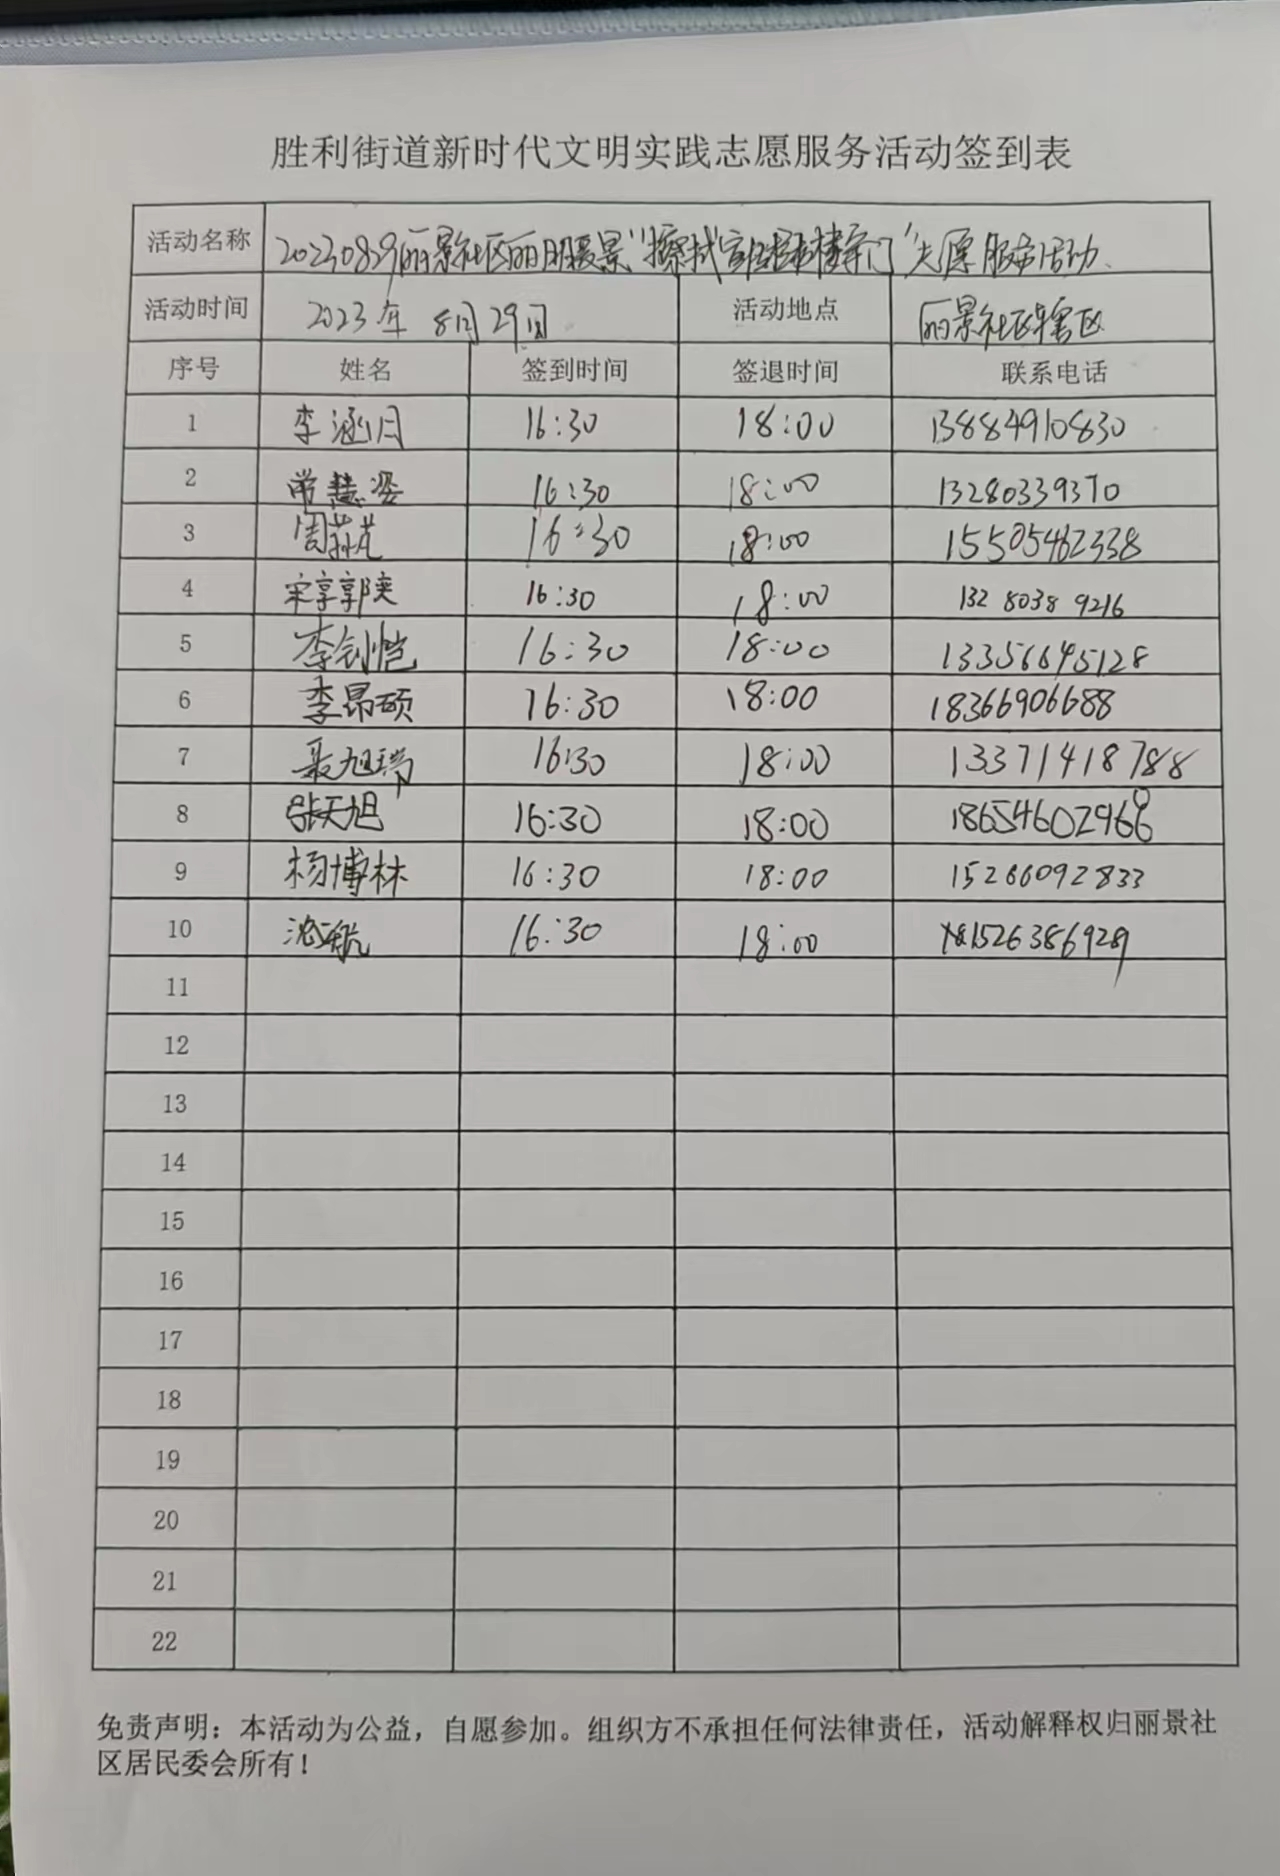 胜利街道新时代文明实践志愿服务活动签到表
活动名称 20230829丽景社区丽日暖景"擦拭宣传栏和楼宇门"志愿服务活动
活动时间 2023年 8月29日 活动地点 丽景社区辖区
序号 姓名 签到时间 签退时间 联系电话
1 李涵月 16:30 18:00 13884910830
2 常慧姿 16:30 18:00 13280339370
3 周荪艺 16:30 18:00 15505462338
4 宋享郭陕 16:30 18:00 132 8038 9216
5 李钊恺 16:30 18:00 13356645128
6 李昂硕 16:30 18:00 18366906688
7 聂旭瑞 16:30 18:00 13371418788
8 张天旭 16:30 18:00 18654602968
9 杨博林 16:30 18:00 15266092833
10 沈航 16:30 18:00 15263869289
11
12
13
14
15
16
17
18
19
20
21
22
免责声明：本活动为公益，自愿参加。组织方不承担任何法律责任，活动解释权归丽景社
区居民委会所有！